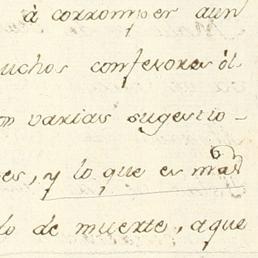 à corromper aun
uchos confesores ól
on varias sugestio-
es, y lo que es mas
do de muerte, aque